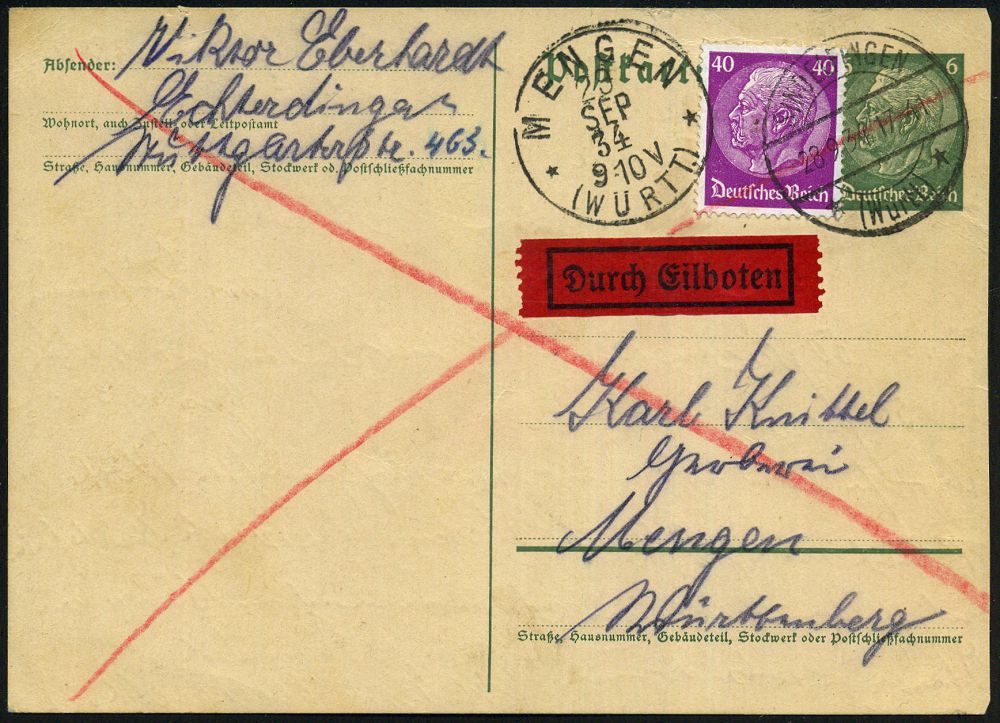 Absender: Viktor Eberhardt
Echterdingen
Wohnort, auch Zustell- oder Leitpostamt
Stuttgarterstr. 463.
Straße, Hausnummer, Gebäudeteil, Stockwerk od. Postschließfachnummer
Postkarte
MENGEN
SEP
34
9-10 V
(WÜRTT)
40 40
Deutsches Reich
6
Deutsches Reich
(WÜRTT)
Durch Eilboten
Karl Knittel
Gerberei
Mengen
Württemberg
Straße, Hausnummer, Gebäudeteil, Stockwerk oder Postschließfachnummer